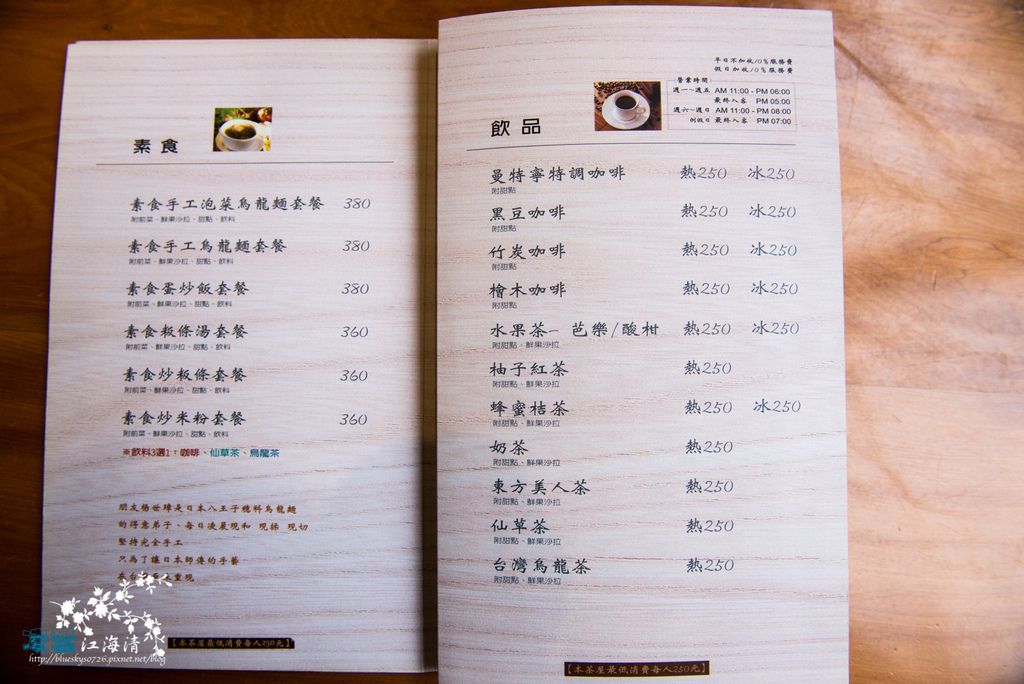 素食
素食手工泡菜烏龍麵套餐 380
附前菜、鮮果沙拉、甜點、飲料
素食手工烏龍麵套餐 380
附前菜、鮮果沙拉、甜點、飲料
素食蛋炒飯套餐 380
附前菜、鮮果沙拉、甜點、飲料
素食粄條湯套餐 360
附前菜、鮮果沙拉、甜點、飲料
素食炒粄條套餐 360
附前菜、鮮果沙拉、甜點、飲料
素食炒米粉套餐 360
附前菜、鮮果沙拉、甜點、飲料
※飲料3選1：咖啡、仙草茶、烏龍茶
朋友楊世瑋是日本八王子穗科烏龍麵
的得意弟子、每日凌晨現和 現揉 現切
堅持完全手工
只為了讓日本師傅的手藝
重現
【本茶屋最低消費每人250元】
江海清
http://bluesky0726.pixnet.net/blog
平日不加收10%服務費
假日加收10%服務費
營業時間
週一~週五 AM 11:00 - PM 06:00
最終入客 PM 05:00
週六~週日 AM 11:00 - PM 08:00
例假日 最終入客 PM 07:00
飲品
曼特寧特調咖啡 熱250 冰250
附甜點
黑豆咖啡 熱250 冰250
附甜點
竹炭咖啡 熱250 冰250
附甜點
檜木咖啡 熱250 冰250
附甜點
水果茶- 芭樂/酸柑 熱250 冰250
附甜點、鮮果沙拉
柚子紅茶 熱250
附甜點、鮮果沙拉
蜂蜜桔茶 熱250 冰250
附甜點、鮮果沙拉
奶茶 熱250
附甜點、鮮果沙拉
東方美人茶 熱250
附甜點、鮮果沙拉
仙草茶 熱250
附甜點、鮮果沙拉
台灣烏龍茶 熱250
附甜點、鮮果沙拉
【本茶屋最低消費每人250元】